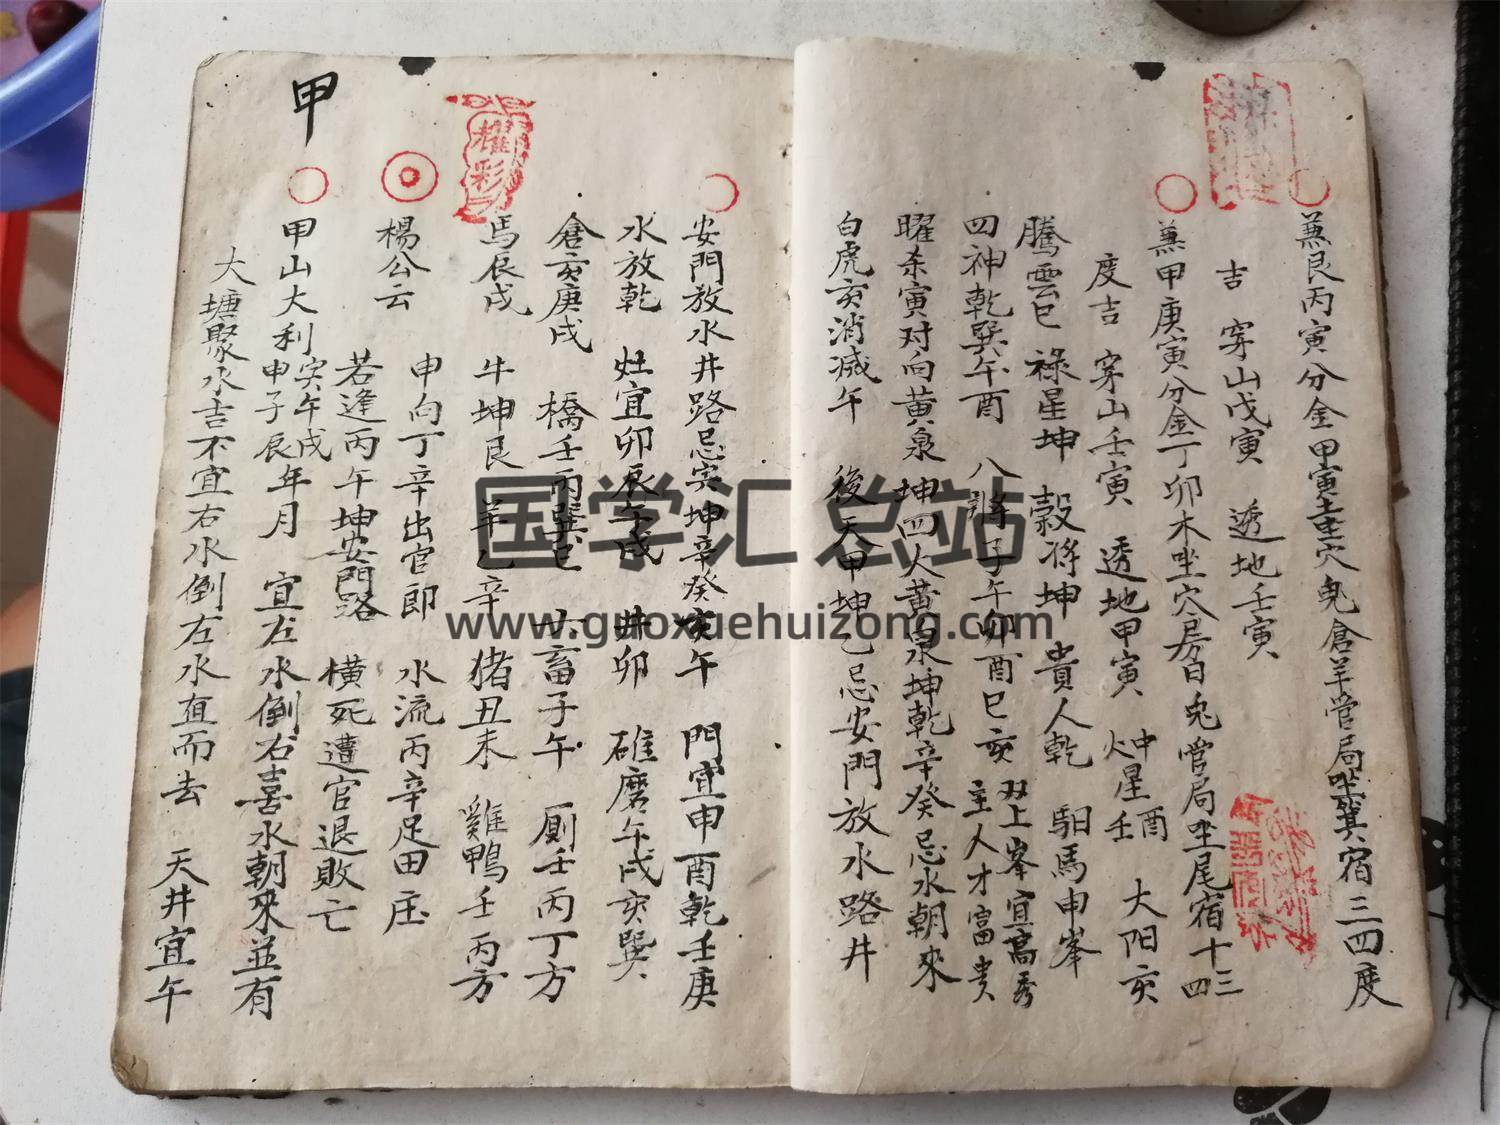 兼艮丙寅分金甲寅土重穴鬼倉羊管局坐箕宿三四度
吉 穿山戊寅 透地壬寅
兼甲庚寅分金丁卯木坐穴房日兎管局坐尾宿十三四
度吉 穿山壬寅 透地甲寅 帅星壬酉 大阳亥
騰雲巳 祿星坤 穀将坤 貴人乾 馹馬申峯
四神乾巽午酉 八將子午卯酉巳亥 双上峯宜高秀主人才富贵
曜杀寅对向黄泉坤四大黄泉坤乾辛癸忌水朝來
白虎亥消減午 後天甲坤乙忌安門放水路井
安門放水井路忌寅坤辛癸亥午 門宜申酉乾壬庚
水放乾 灶宜卯辰午戌 井卯 碓磨午戌亥巽
倉亥庚戌 橋壬丙巽巳 廿畜子午 厠壬丙丁方
馬辰戌 牛坤艮 羊乙辛 猪丑未 雞鴨壬丙方
楊公云 申向丁辛出官郎 水流丙辛足田庄
若逢丙午坤安門路 橫死遭官退敗亡
甲山大利寅午戌申子辰年月 宜左水倒右喜水朝來並有
大塘聚水吉不宜右水倒左水直而去 天井宜午
甲
耀彩
国学汇总站
www.guoxuehuizong.com